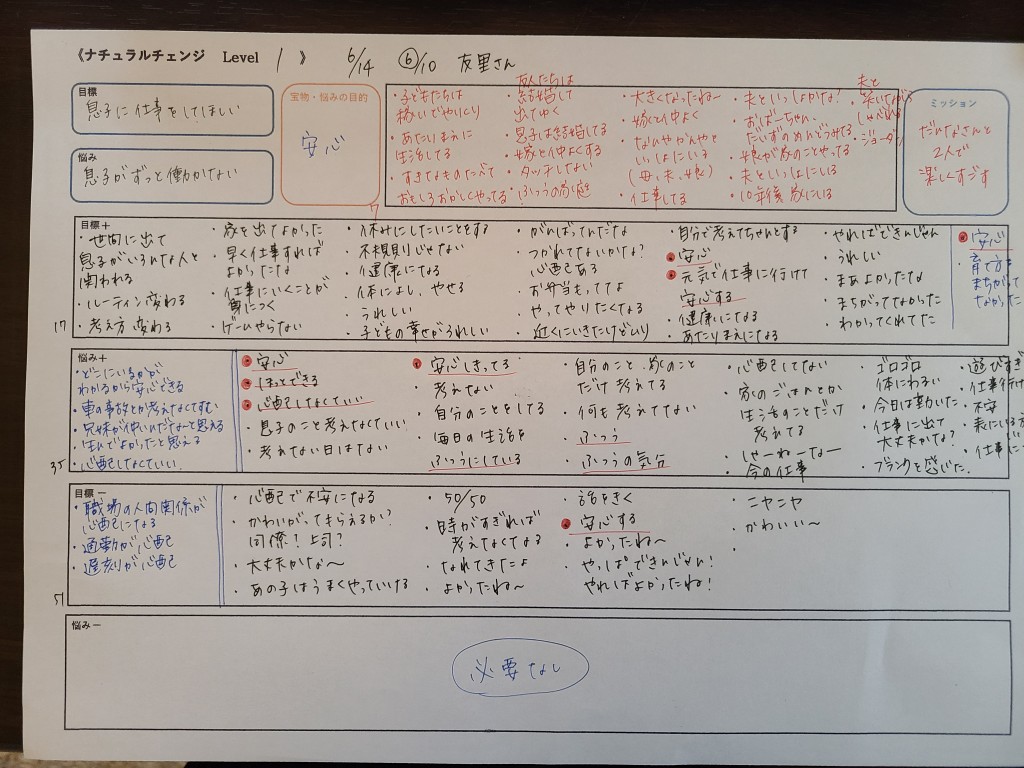 《ナチュラルチェンジ Level 1 》 6/14 ⑥/10 友里さん
目標
息子に仕事をしてほしい
悩み
息子がずっと働かない
宝物・悩みの目的
安心
・子どもたちは
稼いでやりくり
・あたりまえに
生活してる
・すきなものたべて
おもしろおかしくやってる
友人たちは
・結婚して
出てゆく
・息子は結婚してる
・嫁と仲よくする
・タッチしない
・ふつうの家庭
・大きくなったねー
・嫁と仲よく
・なんやかんやと
いっしょにいる
(母、夫、娘)
・仕事してる
・夫といっしょかな?
・おばーちゃん、
だいずのめんどうみてる
・娘が家のことやってる
・夫といっしょにいる
・10年後 家にいる
夫と
・笑いながら
しゃべれる
・ジョーダン
ミッション
だんなさんと
2人で
楽しくすごす
目標+
・世間に出て
息子がいろんな人と
関われる
・ルーティン変わる
・考え方変わる
・家を出てよかった
・早く仕事すれば
よかったな
・仕事にいくことが
身につく
・ゲームやらない
・休みにしたいことをする
・不規則じゃない
・健康になる
・体によし、やせる
・うれしい
・子どもの幸せがうれしい
・がんばってんだな
・つかれてないかな?
心配ある
・お弁当もってよ
・やってやりたくなる
・近くにいきたいけどムリ
・自分で考えてちゃんとする
・安心
・元気で仕事に行けて
安心する
・健康になる
・あたりまえになる
・やればできんじゃん
・うれしい
・まあよかったな
・まちがってなかった
・わかってくれてた
・安心
・育て方
まちがって
なかった
17
悩み+
・どこにいるかが
わかるから安心できる
・車の事故とか考えなくてすむ
・兄妹が仲いいんだなーって思える
・生んでよかったと思える
・心配しなくていい
・安心
・ほっとできる
・心配しなくていい
・息子のこと考えなくていい
・考えない日はない
・安心しきってる
・考えない
・自分のことをしてる
・毎日の生活を
ふつうにしている
・自分のこと、家のこと
だけ考えてる
・何も考えてない
・ふつう
・ふつうの気分
・心配してない
・家のごはんとか
生活のことだけ
考えてる
・しゃーねーなー
・今の仕事
・ゴロゴロ
体にわるい
・今日は動いた
・仕事に出て
大丈夫かな?
・ブランクを感じた
・遊びすぎ
・仕事行け
・不安
・表にいる方
・仕事に
35
目標-
・職場の人間関係が
心配になる
・通勤が心配
・遅刻が心配
・心配で不安になる
・かわいがってもらえるか?
同僚!上司?
・大丈夫かな～
・あの子はうまくやっていける
・50/50
・時がすぎれば
考えなくてなる
・なれてきたよ
・よかったね～
・話をきく
・安心する
・よかったね～
・やっぱできんじゃん!
やればよかったね!
・ニヤニヤ
・かわいい～
51
悩み-
必要なし